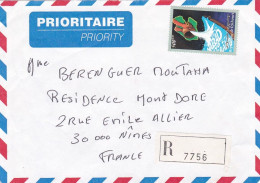 PRIORITAIRE
PRIORITY
Mme
BERENGUER MOUTAHA
RESIDENCE MONT DORE
2 RUE EMILE ALLIER
30000 NÎMES
FRANCE
R
7756